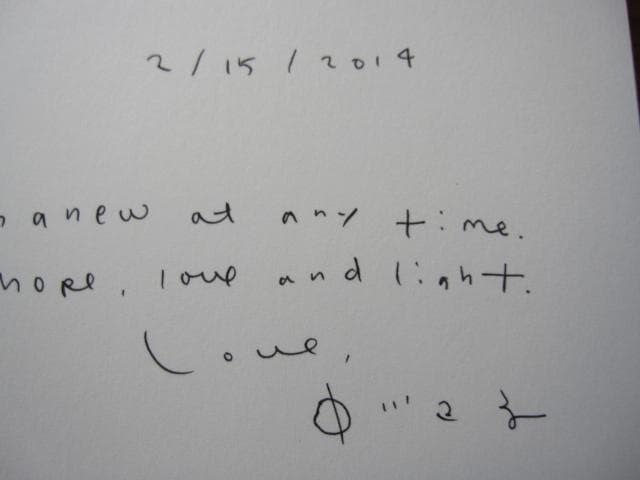 2/15/2014
anew at any time.
hope, love and light.
Love,